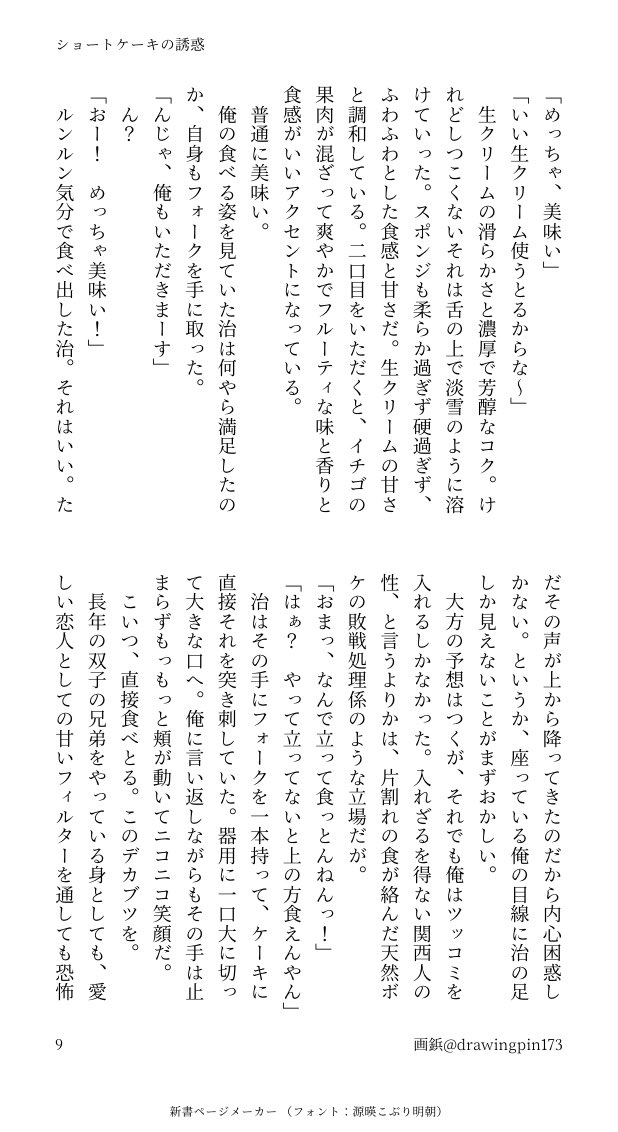 ショートケーキの誘惑
「めっちゃ、美味い」
「いい生クリーム使うとるからな～」
　生クリームの滑らかさと濃厚で芳醇なコク。け
れどしつこくないそれは舌の上で淡雪のように溶
けていった。スポンジも柔らか過ぎず硬過ぎず、
ふわふわとした食感と甘さだ。生クリームの甘さ
と調和している。二口目をいただくと、イチゴの
果肉が混ざって爽やかでフルーティな味と香りと
食感がいいアクセントになっている。
　普通に美味い。
　俺の食べる姿を見ていた治は何やら満足したの
か、自身もフォークを手に取った。
「んじゃ、俺もいただきまーす」
　ん？
「おー！　めっちゃ美味い！」
　ルンルン気分で食べ出した治。それはいい。た
だその声が上から降ってきたのだから内心困惑し
かない。というか、座っている俺の目線に治の足
しか見えないことがまずおかしい。
　大方の予想はつくが、それでも俺はツッコミを
入れるしかなかった。入れざるを得ない関西人の
性、と言うよりかは、片割れの食が絡んだ天然ボ
ケの敗戦処理係のような立場だが。
「おまっ、なんで立って食っとんねんっ！」
「はぁ？　やって立ってないと上の方食えんやん」
　治はその手にフォークを一本持って、ケーキに
直接それを突き刺していた。器用に一口大に切っ
て大きな口へ。俺に言い返しながらもその手は止
まらずもっもっと頬が動いてニコニコ笑顔だ。
　こいつ、直接食べとる。このデカブツを。
　長年の双子の兄弟をやっている身としても、愛
しい恋人としての甘いフィルターを通しても恐怖
9
画鋲@drawingpin173
新書ページメーカー（フォント：源暎こぶり明朝）